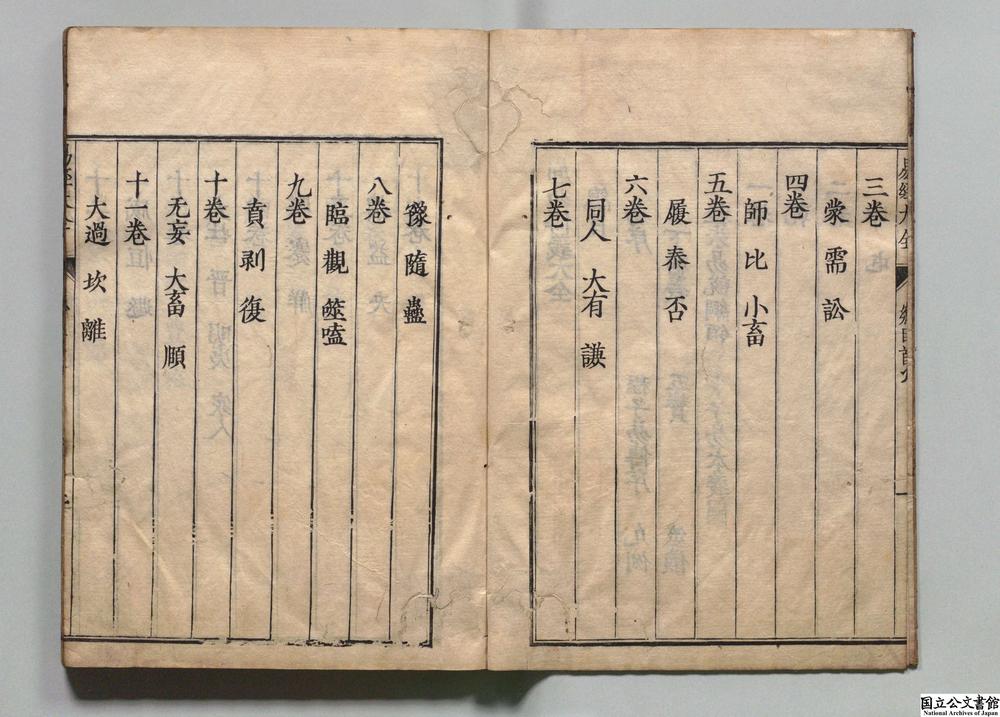 易經大全
三卷
蒙 需 訟
四卷
師 比 小畜
五卷
履 泰 否
六卷
同人 大有 謙
七卷
豫 隨 蠱
八卷
臨 觀 噬嗑
九卷
賁 剥 復
十卷
无妄 大畜 頤
十一卷
大過 坎 離
国立公文書館
National Archives of Japan